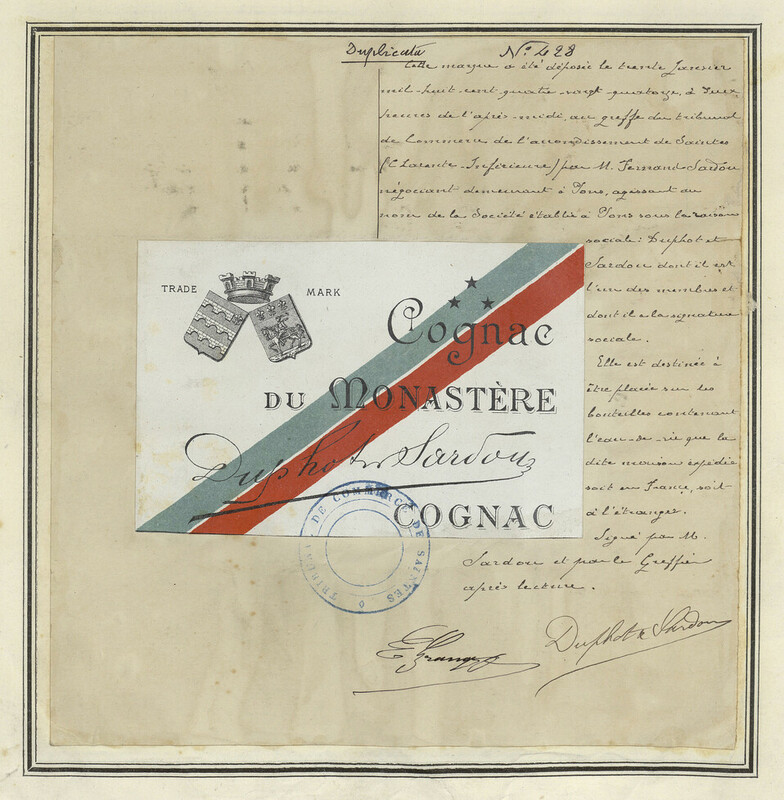 Duplicata N° 428
Cette marque a été déposée le trente Janvier
mil-huit cent quatre-vingt quatorze, à deux
heures de l'après-midi, au greffe du tribunal
de Commerce de l'arrondissement de Saintes
(Charente-Inférieure) par M. Fernand Sardou
négociant demeurant à Pons, agissant au
nom de la Société établie à Pons sous la raison
sociale: Duphot et
Sardou dont il est
l'un des membres et
dont il a la signature
sociale.
Elle est destinée à
être placée sur les
bouteilles contenant
l'eau-de-vie que la
dite maison expédie
soit en France, soit
à l'étranger.
Signé par M.
Sardou et par le Greffier
après lecture.
TRADE MARK
Cognac
DU MONASTÈRE
Duphot & Sardou
COGNAC
TRIBUNAL DE COMMERCE DE SAINTES
Duphot & Sardou